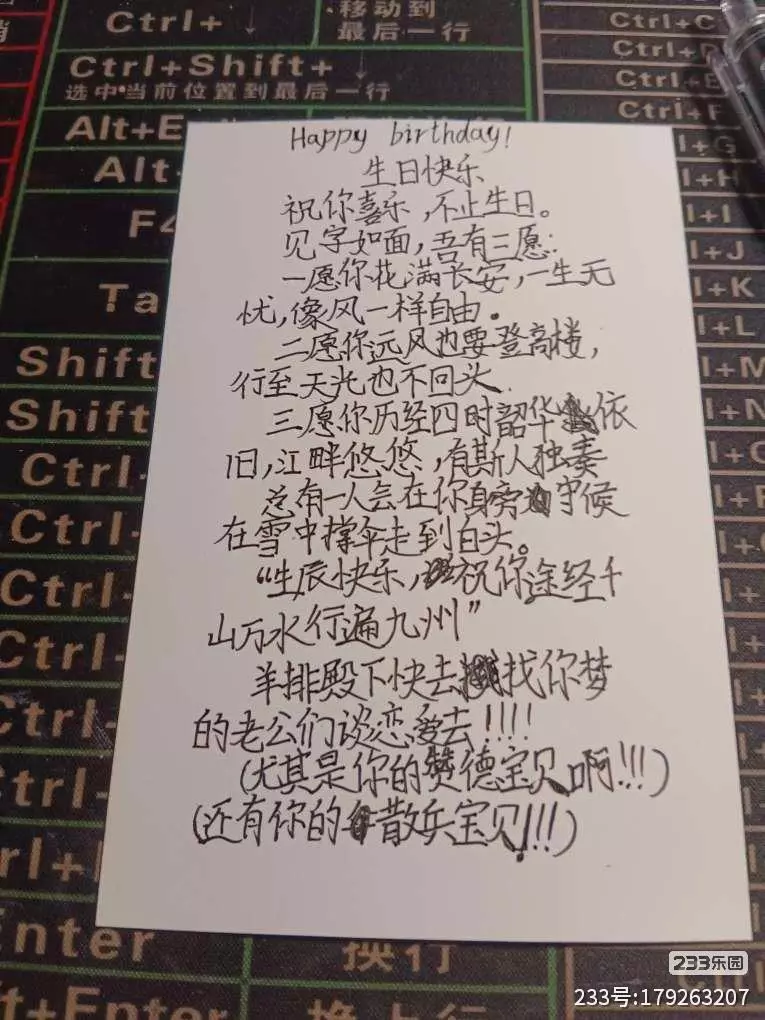 Ctrl+ ↓
移动到
最后一行
Ctrl+Shift+ ↓
选中当前位置到最后一行
Alt+E
Alt+
F4
Ta
Shift
Shift+
Ctrl+
Ctrl+
Ctrl+
Ctrl+
Ctrl+
Ctrl+
rl+
Enter
换行
ft+Enter
换上行
Ctrl+C
Ctrl+D
Ctrl+E
Ctrl+F
l+G
l+H
l+I
l+J
l+K
l+L
Happy birthday!
生日快乐
祝你喜乐,不止生日。
见字如面,吾有三愿:
一愿你花满长安,一生无
忧,像风一样自由。
二愿你远风也要登高楼,
行至天光也不回头.
三愿你历经四时韶华依
旧,江畔悠悠,有斯人独奏
总有一人会在你身旁守候
在雪中撑伞走到白头。
“生辰快乐,祝你途经千
山万水行遍九州”
羊排殿下快去找你梦
的老公们谈恋爱去!!!!
(尤其是你的赞德宝贝啊!!!)
(还有你的散兵宝贝!!!)
233乐园
233号:179263207